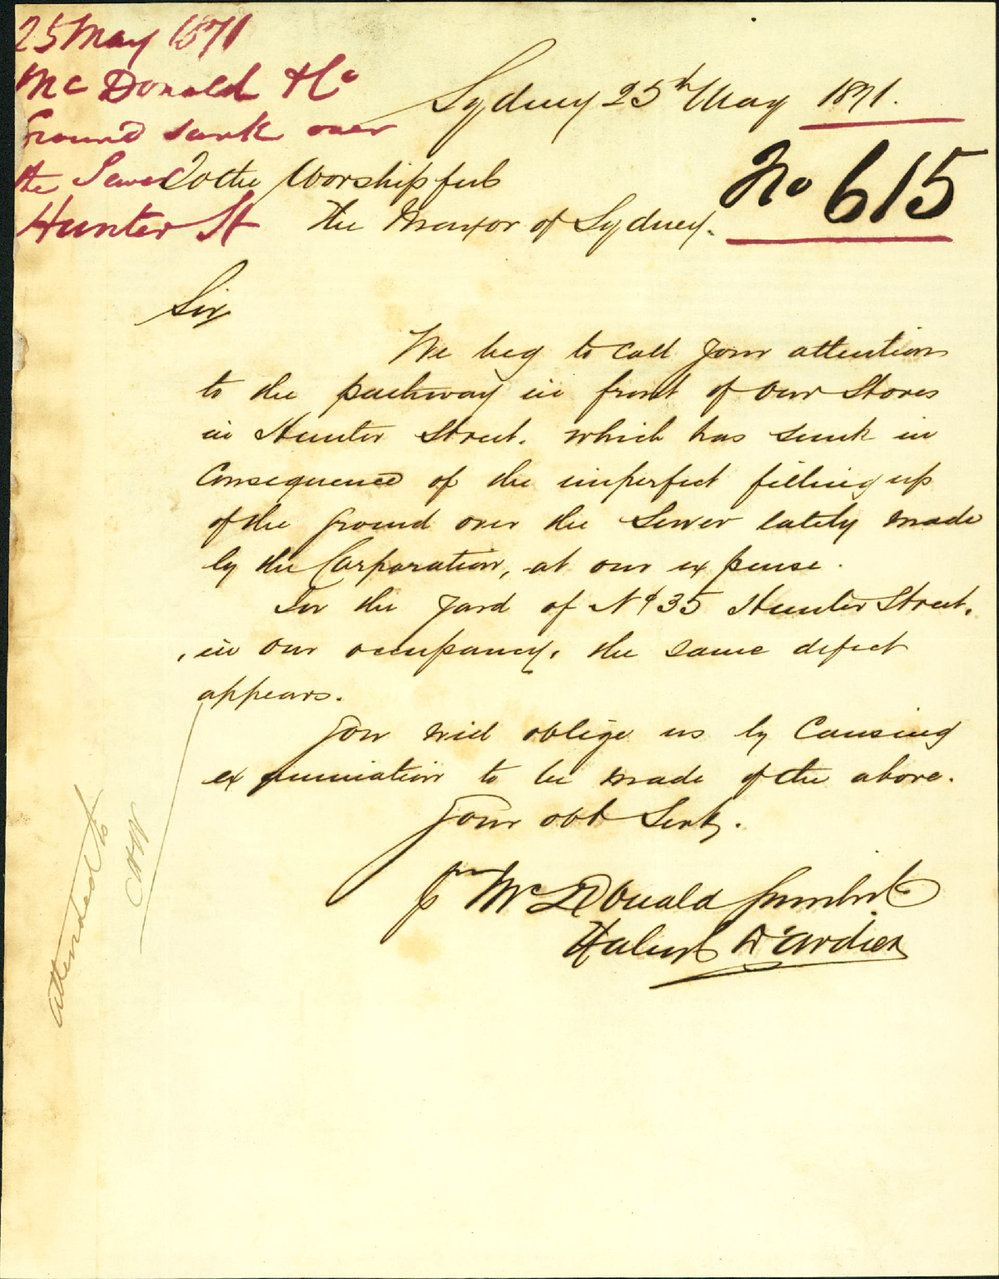 25 May 1871
McDonald & Co
Ground sunk over
the Sewer
Hunter St
Sydney 25th May 1871.
No 615
To the Worshipful
The Mayor of Sydney.
Sir
We beg to call your attention
to the pathway in front of our Stores
in Hunter Street. which has sunk in
Consequence of the imperfect filling up
of the ground over the Sewer lately made
by the Corporation, at our expense.
In the yard of No 35 Hunter Street,
in our occupancy, the same defect
appears.
You will oblige us by Causing
examination to be made of the above.
Your obt Servts.
pr McDonald
attended to